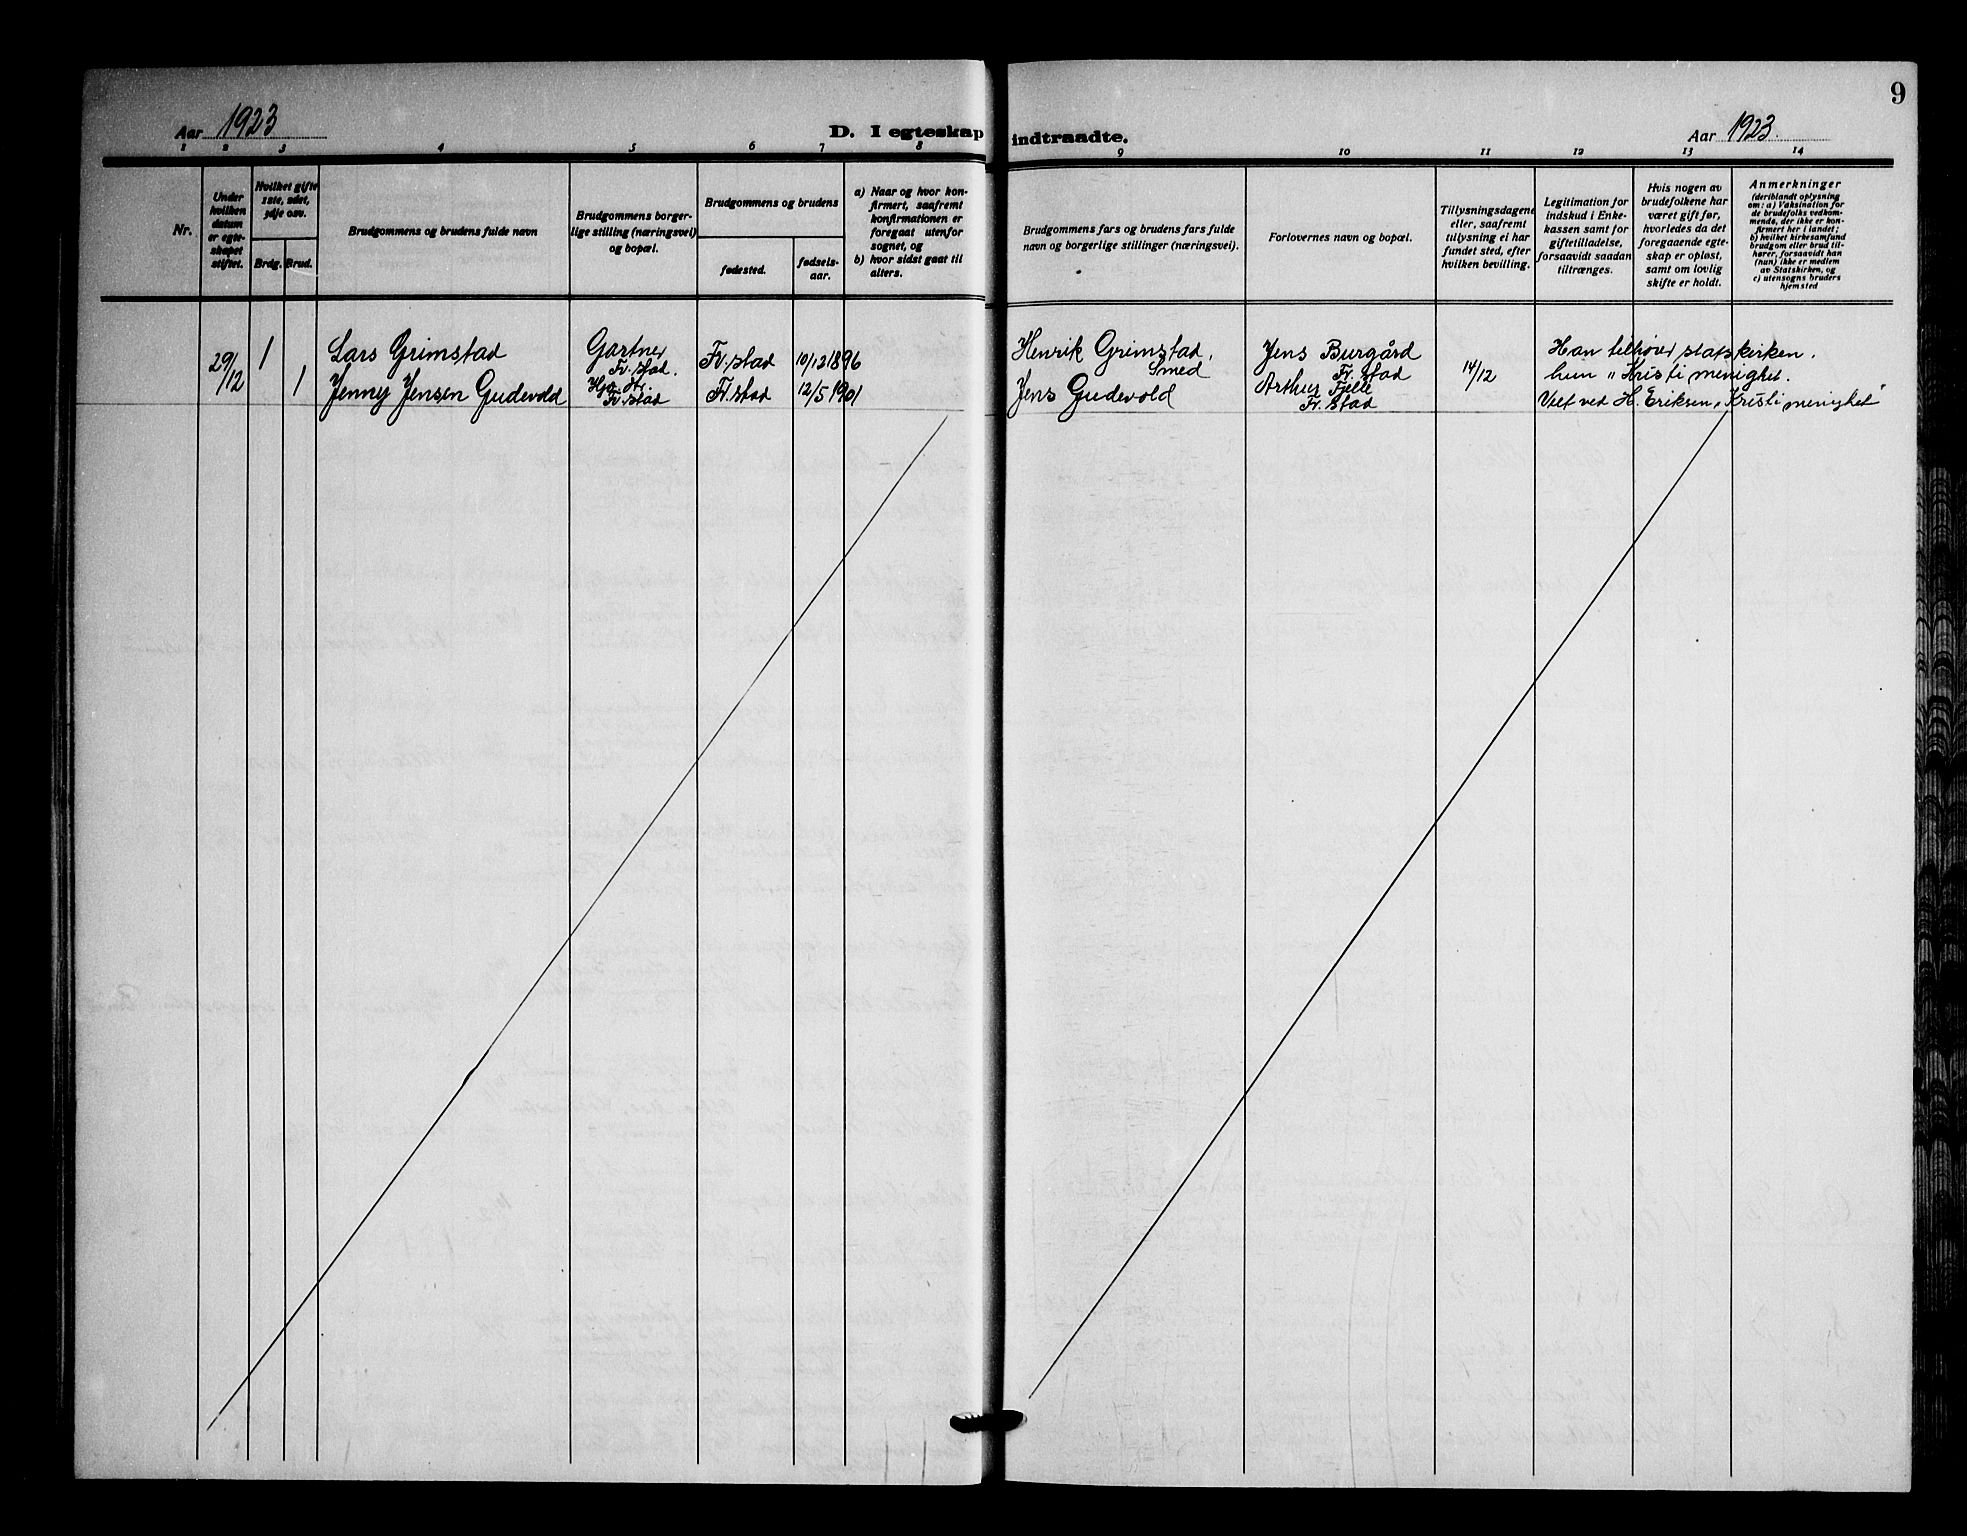 9
Aar 1923
D. I egteskap indtraadte.
Aar 1923
1 2 3 4 5 6 7 8 9 10 11 12 13 14
Nr.
Under
hvilken
datum
er egte-
skapet
stiftet.
Hvilket gifte
1ste, 2det,
3dje osv.
Brdg. Brud.
Brudgommens og brudens fulde navn
Brudgommens borger-
lige stilling (næringsvei)
og bopæl.
Brudgommens og brudens
fødested.
fødsels-
aar.
a) Naar og hvor kon-
firmert, saafremt
konfirmationen er
foregaat utenfor
sognet, og
b) hvor sidst gaat til
alters.
Brudgommens fars og brudens fars fulde
navn og borgerlige stillinger (næringsvei).
Forlovernes navn og bopæl.
Tillysningsdagene
eller, saafremt
tillysning ei har
fundet sted, efter
hvilken bevilling.
Legitimation for
indskud i Enke-
kassen samt for
giftetilladelse,
forsaavidt saadan
tiltrænges.
Hvis nogen av
brudefolkene har
været gift før,
hvorledes da det
foregaaende egte-
skap er opløst,
samt om lovlig
skifte er holdt.
Anmerkninger
(deriblandt oplysning
om: a) Vaksination for
de brudefolks vedkom-
mende, der ikke er kon-
firmert her i landet;
b) hvilket kirkesamfund
brudgom eller brud til-
hører, forsaavidt han
(hun) ikke er medlem
av Statskirken, og
c) utensogns bruders
hjemsted
29/12 1 Lars Grimstad Gartner Fr.stad. Fr.stad 10/12 1896 Henrik Grimstad, Smed Jens Burgård Fr.stad 14/12 Han tilhører statskirken.
1 Jenny Jensen Gudevold Fr.stad Fr.stad 12/5 1901 Jens Gudevold Arthur Fjelle Fr.stad hun "Kristi menighet.
Viet ved H. Eriksen, "Kristi menighet"